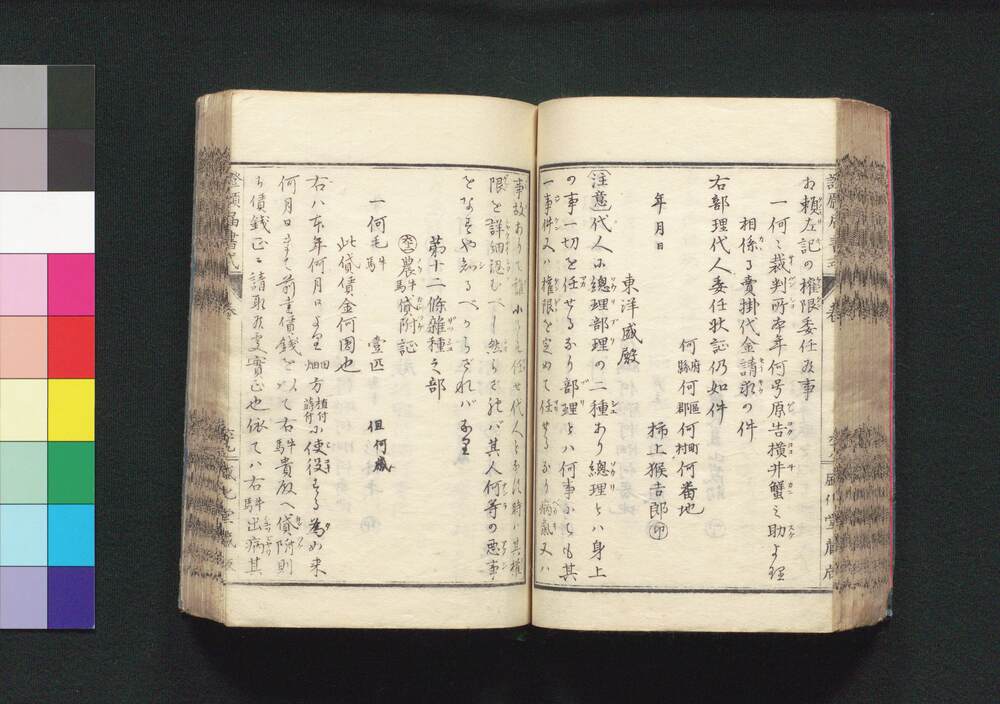 お頼左記の權限委任致事
一何〻裁判所本年何号原告横井蟹之助より
相係る賣掛代金請求の件
右部理代人委任状証仍如件
何府縣何區郡何町村何番地
年月日
柿上猴吉郎㊞
東洋盛殿
注意代人ハ總理部理の二種あり總理とハ身上
の事一切を任せるなり部理とハ何事にても其
一事件又ハ權限を定めて任せるなり病氣又ハ
事故ありて誰
代人と
時ハ其權
限を詳細認むべし然らざれバ其人何等の惡事
をなすや知るべからざれバなり
第十二條雜種之部
農牛馬貸附証
一何毛牛馬 壹匹 但何歳
此貸賃金何圓也
右ハ本年何月日より田畑方植付蒔付に使役する為め来
何月日まて前書賃錢を以て右牛馬貴殿へ貸附則
ち賃錢正ニ請取候処實正也依てハ右牛馬出病其